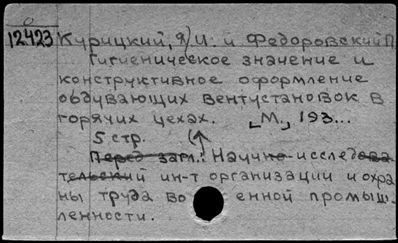 12423 Курицкий, Я/И. и Федоровский П.
Гигиеническое значение и
конструктивное оформление
обдувающих вентустановок в
горячих цехах. [М., 193...
5 стр.
Перед загл.: Научно-исследова
тельский ин-т организации и охра
ны труда во енной промыш-
ленности.